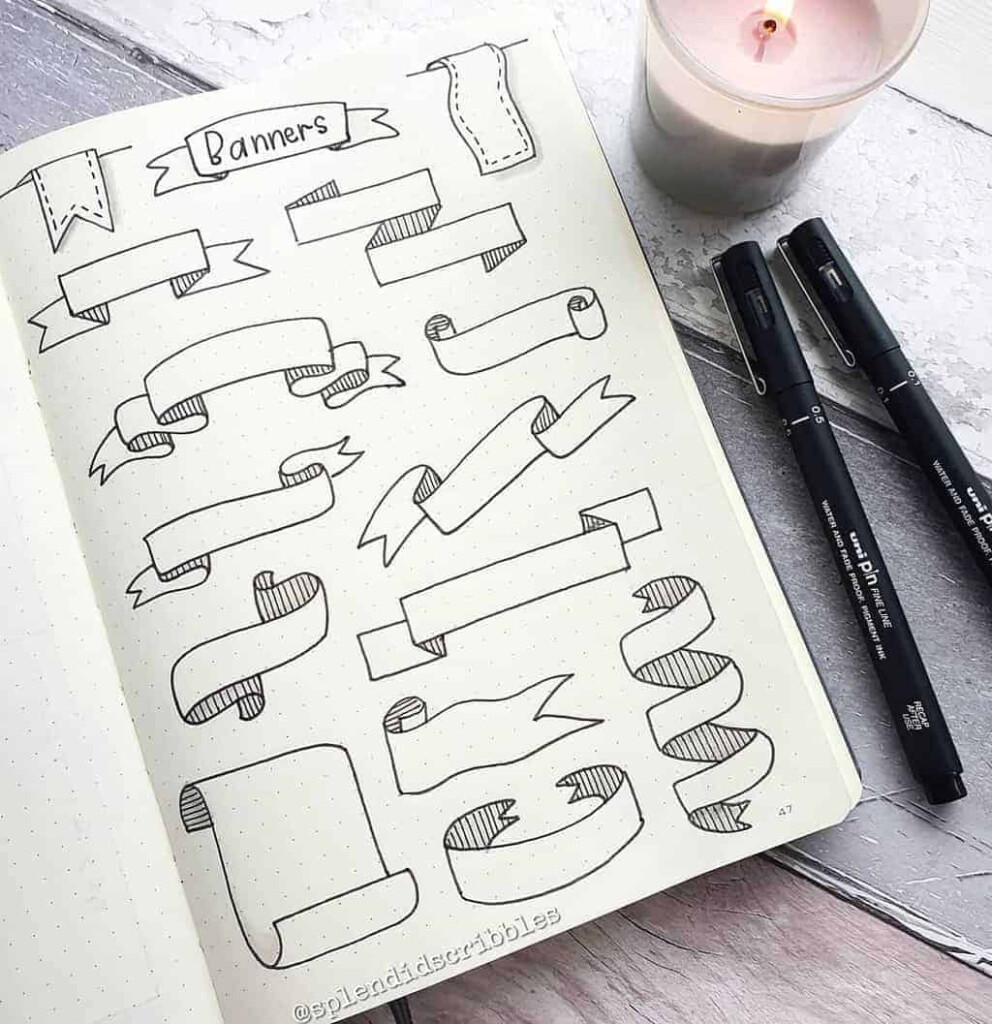 Banners
0.5
0.1
uni pin FINE LINE
WATER AND FADE PROOF, PIGMENT INK
RECAP
AFTER
USE
uni
WATER AND FADE PROOF,
47
@splendidscribbles